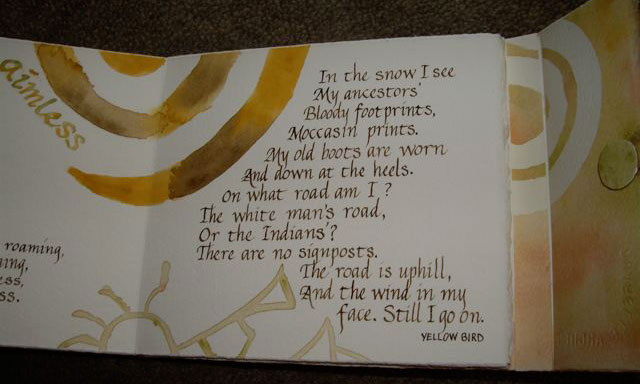 aimless
roaming,
In the snow I see
My ancestors'
Bloody footprints,
Moccasin prints.
My old boots are worn
And down at the heels.
On what road am I?
The white man's road,
Or the Indians'?
There are no signposts.
The road is uphill,
And the wind in my
face. Still I go on.
YELLOW BIRD